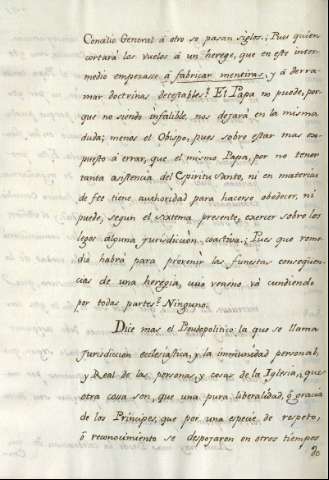 Concilio General à otro se pasan siglos.¿ Pues quien
cortará los vuelos à un herege, que en este inter-
medio empezase á fabricar mentiras, y á derra-
mar doctrinas detestables? El Papa no puede, por-
que no siendo infalible, nos dejará en la misma
duda; menos el Obispo, pues sobre estar mas ex-
puesto à errar, que el mismo Papa, por no tener
tanta asistencia del Espiritu Santo, ni en materias
de fee tiene authoridad para hacerse obedecer, ni
puede, segun el sistema presente, exercer sobre los
legos alguna jurisdiccion coactiva.¿ Pues que reme-
dio habrá para prevenir las funestas consequen-
cias de una heregia, cuio veneno vá cundiendo
por todas partes? Ninguno.
Dice mas el Pseudopolitico la que se llama
jurisdiccion ecclesiastica, y la immunidad personal,
y Real de las personas, y cosas de la Iglesia, que
otra cosa son, que una pura liberalidad, ò gracia
de los Principes, que por una especie de respeto,
ò reconocimiento se despojaron en otros tiempos
de